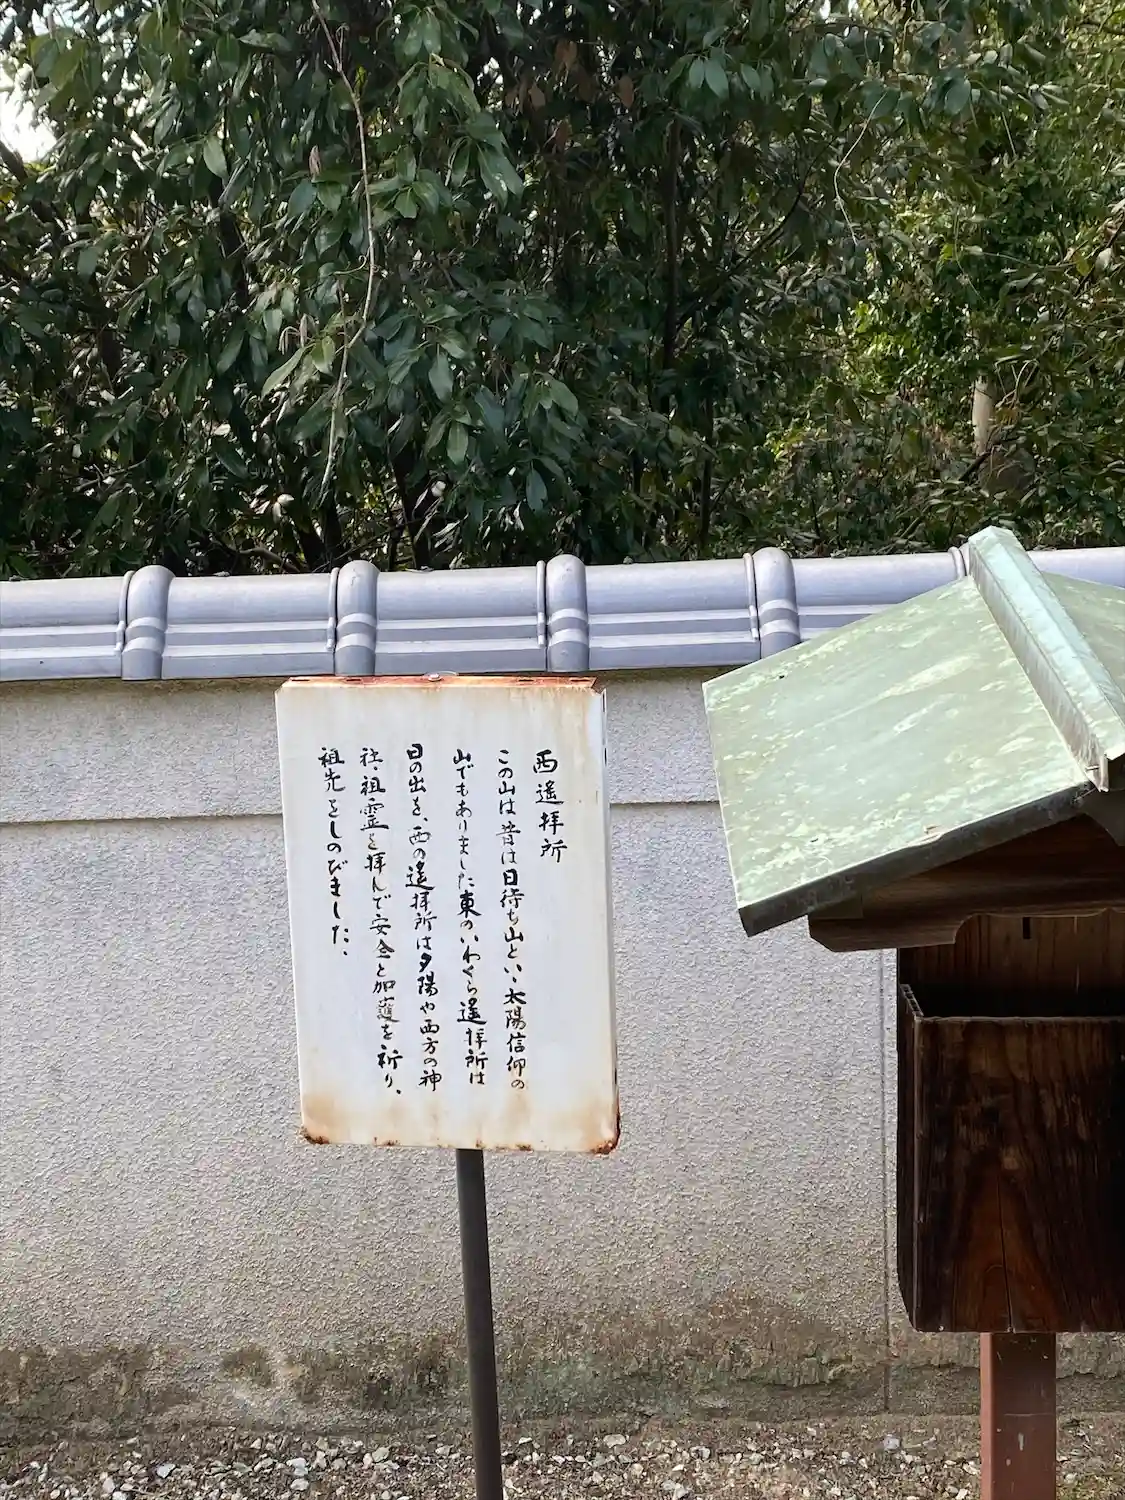 西遙拝所
この山は昔は日待ち山といい太陽信仰の
山でもありました東のいわくら遙拝所は
日の出を、西の遙拝所は夕陽や西方の神
社、祖霊を拝んで安全と加護を祈り、
祖先をしのびました、